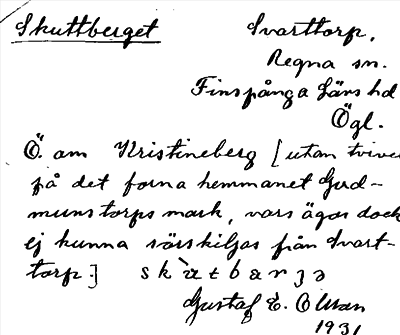 Skuttberget
Svarttorp,
Regna sn.
Finspånga läns hd
Ögl.
Ö. om Kristineberg [utan tvivel
på det forna hemmanet Gud-
munstorps mark, vars ägor dock
ej kunna särskiljas från Svart-
torp.]
Gustaf E. Olsson
1931